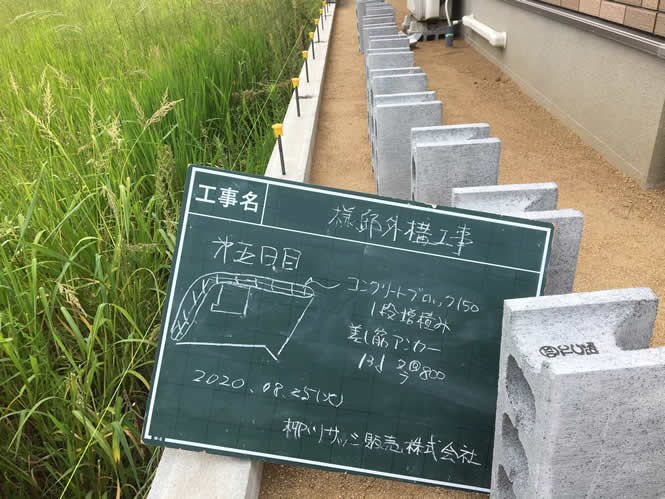 工事名
様邸外構工事
第五日目
コンクリートブロック150
1段増積み
差し筋アンカー
13¢ タテ@800
2020.08.25(火)
株式会社